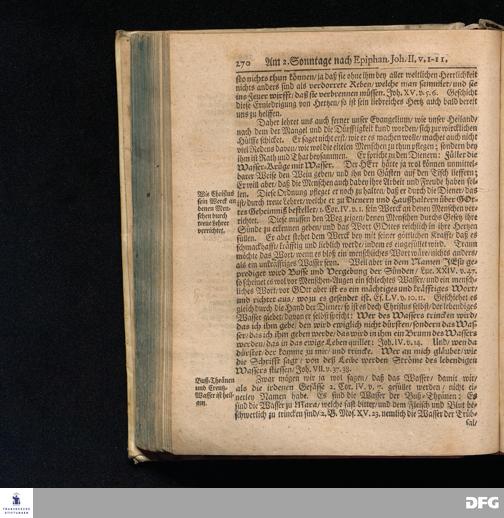 270 Am 2. Sonntage nach Epiphan. Joh. II, v. 1-11,
sto nichts thun können/ ja daß sie ohne ihm bey aller weltlichen Herrlichkeit
nichts anders sind als verdorrete Reben/ welche man samlet/ und sie
ins Feuer wirfft/ daß sie verbrennen müssen. Joh. XV. v. 5. 6. Geschicht
diese Erniedrigung von Hertzen/ so ist sein liebreiches Hertz auch bald bereit
uns zu helffen.
Daher lehret uns auch ferner unser Evangelium/ wie unser Heiland/
nach dem der Mangel und die Dürfftigkeit kund worden/ sich zur würcklichen
Hülffe schicket. Er saget nicht erst/ wie er es machen wolle/ machet auch nicht
viel Redens davon/ wie wol die eitelen Menschen zu thun pflegen; sondern bey
ihm ist Rath und That beysammen. Er spricht zu den Dienern: Füllet die
Wasser-Krüge mit Wasser. Der HErr hätte ja wol können unmittel-
barer Weise den Wein geben/ und ihn den Gästen auf den Tisch liefern;
Er will aber/ daß die Menschen auch dabey ihre Arbeit und Freude haben sol-
len. Diese Ordnung pfleget er noch zu halten/ daß er durch die Diener das
ist durch treue Lehrer/ welche er zu Dienern und Haußhaltern über GOt-
tes Geheimniß bestellet/ 1. Cor. IV. v. 1. sein Werck an denen Menschen ver-
richtet. Diese müssen den Weg zeigen/ denen Menschen durchs Gesetz ihre
Sünde zu erkennen geben/ und das Wort GOttes reichlich in ihre Hertzen
füllen. Er aber stehet dem Werck bey mit seiner göttlichen Krafft/ daß es
schmackhafft/ kräfftig und lieblich werde/ indem es eingefüllet wird. Traun
möchte das Wort/ wenn es bloß ein menschliches Wort wäre/ nichts anders
als ein unkräfftiges Wasser seyn. Weil aber in dem Namen JEsu ge-
prediget wird Busse und Vergebung der Sünden/ Luc. XXIV. v. 47.
so scheinet es wol vor Menschen-Augen ein schlechtes Wasser/ und ein mensch-
liches Wort/ vor GOtt aber ist es ein mächtiges und kräfftiges Wort/
und richtet aus/ wozu es gesendet ist. Es. LV. v. 10. 11. Geschiehet es
gleich durch die Hand der Diener/ so ist es doch Christus selbst/ der lebendiges
Wasser giebet/ davon er selbst spricht: Wer des Wassers trincken wird/
das ich ihm gebe/ den wird ewiglich nicht dürsten/ sondern das Was-
ser/ das ich ihm geben werde/ das wird in ihm ein Brunn des Wassers
werden/ das in das ewige Leben quillet: Joh. IV. v. 14. Und/ wen da
dürstet/ der komme zu mir/ und trincke. Wer an mich gläubet/ wie
die Schrifft sagt/ von deß Leibe werden Ströme des lebendigen
Wassers fliessen/ Joh. VII. v. 37. 38.
Wie Christus
sein Werck an
denen Men-
schen durch
treue Lehrer
verrichtet.
Zwar mögen wir ja wol sagen/ daß das Wasser/ damit wir/
als die irdenen Gefässe 2. Cor. IV. v. 7. gefüllet werden/ nicht ei-
nerley Namen habe. Es sind die Wasser der Buß-Thränen; Es
sind die Wasser zu Mara/ welche fast bitter/ und dem Fleisch und Blut be-
schwerlich zu trincken sind/ 2. B. Mos. XV. 23. nemlich die Wasser der Trüb-
sal/
Buß-Thränen
und Creutz-
Wasser ist heil-
sam.
FRANCKESCHE
STIFTUNGEN
DFG